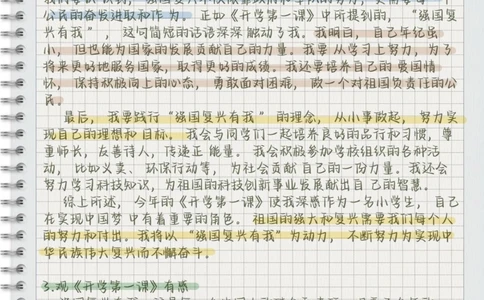 公民的奋发进取和作为。正如《开学第一课》中所提到的，“强国复
兴有我”，这句简短的话语深深触动了我。我明白，自己年纪虽
小，但也能为国家的发展贡献自己的力量。我要从学习上努力，为了
将来更好地服务国家，取得更好的成绩。我还要培养自己的爱国情
怀，保持积极向上的心态，勇敢面对困难，做一个对祖国负责任的公
民。
最后，我要践行“强国复兴有我”的理念，从小事做起，努力实
现自己的理想和目标。我会与同学们一起培养良好的品行和习惯，尊
重师长，友善待人，传递正能量。我会积极参加学校组织的各种活
动，比如义卖、环保行动等，为社会贡献自己的一份力量。我还会
努力学习科技知识，为祖国的科技创新事业发展献出自己的智慧。
综上所述，今年的《开学第一课》使我深感作为一名小学生，自己
在实现中国梦中有着重要的角色。祖国的强大和复兴需要我们每个人
的努力和付出。我将以“强国复兴有我”为动力，不断努力为实现中
华民族伟大复兴而不懈奋斗。
3.观《开学第一课》有感